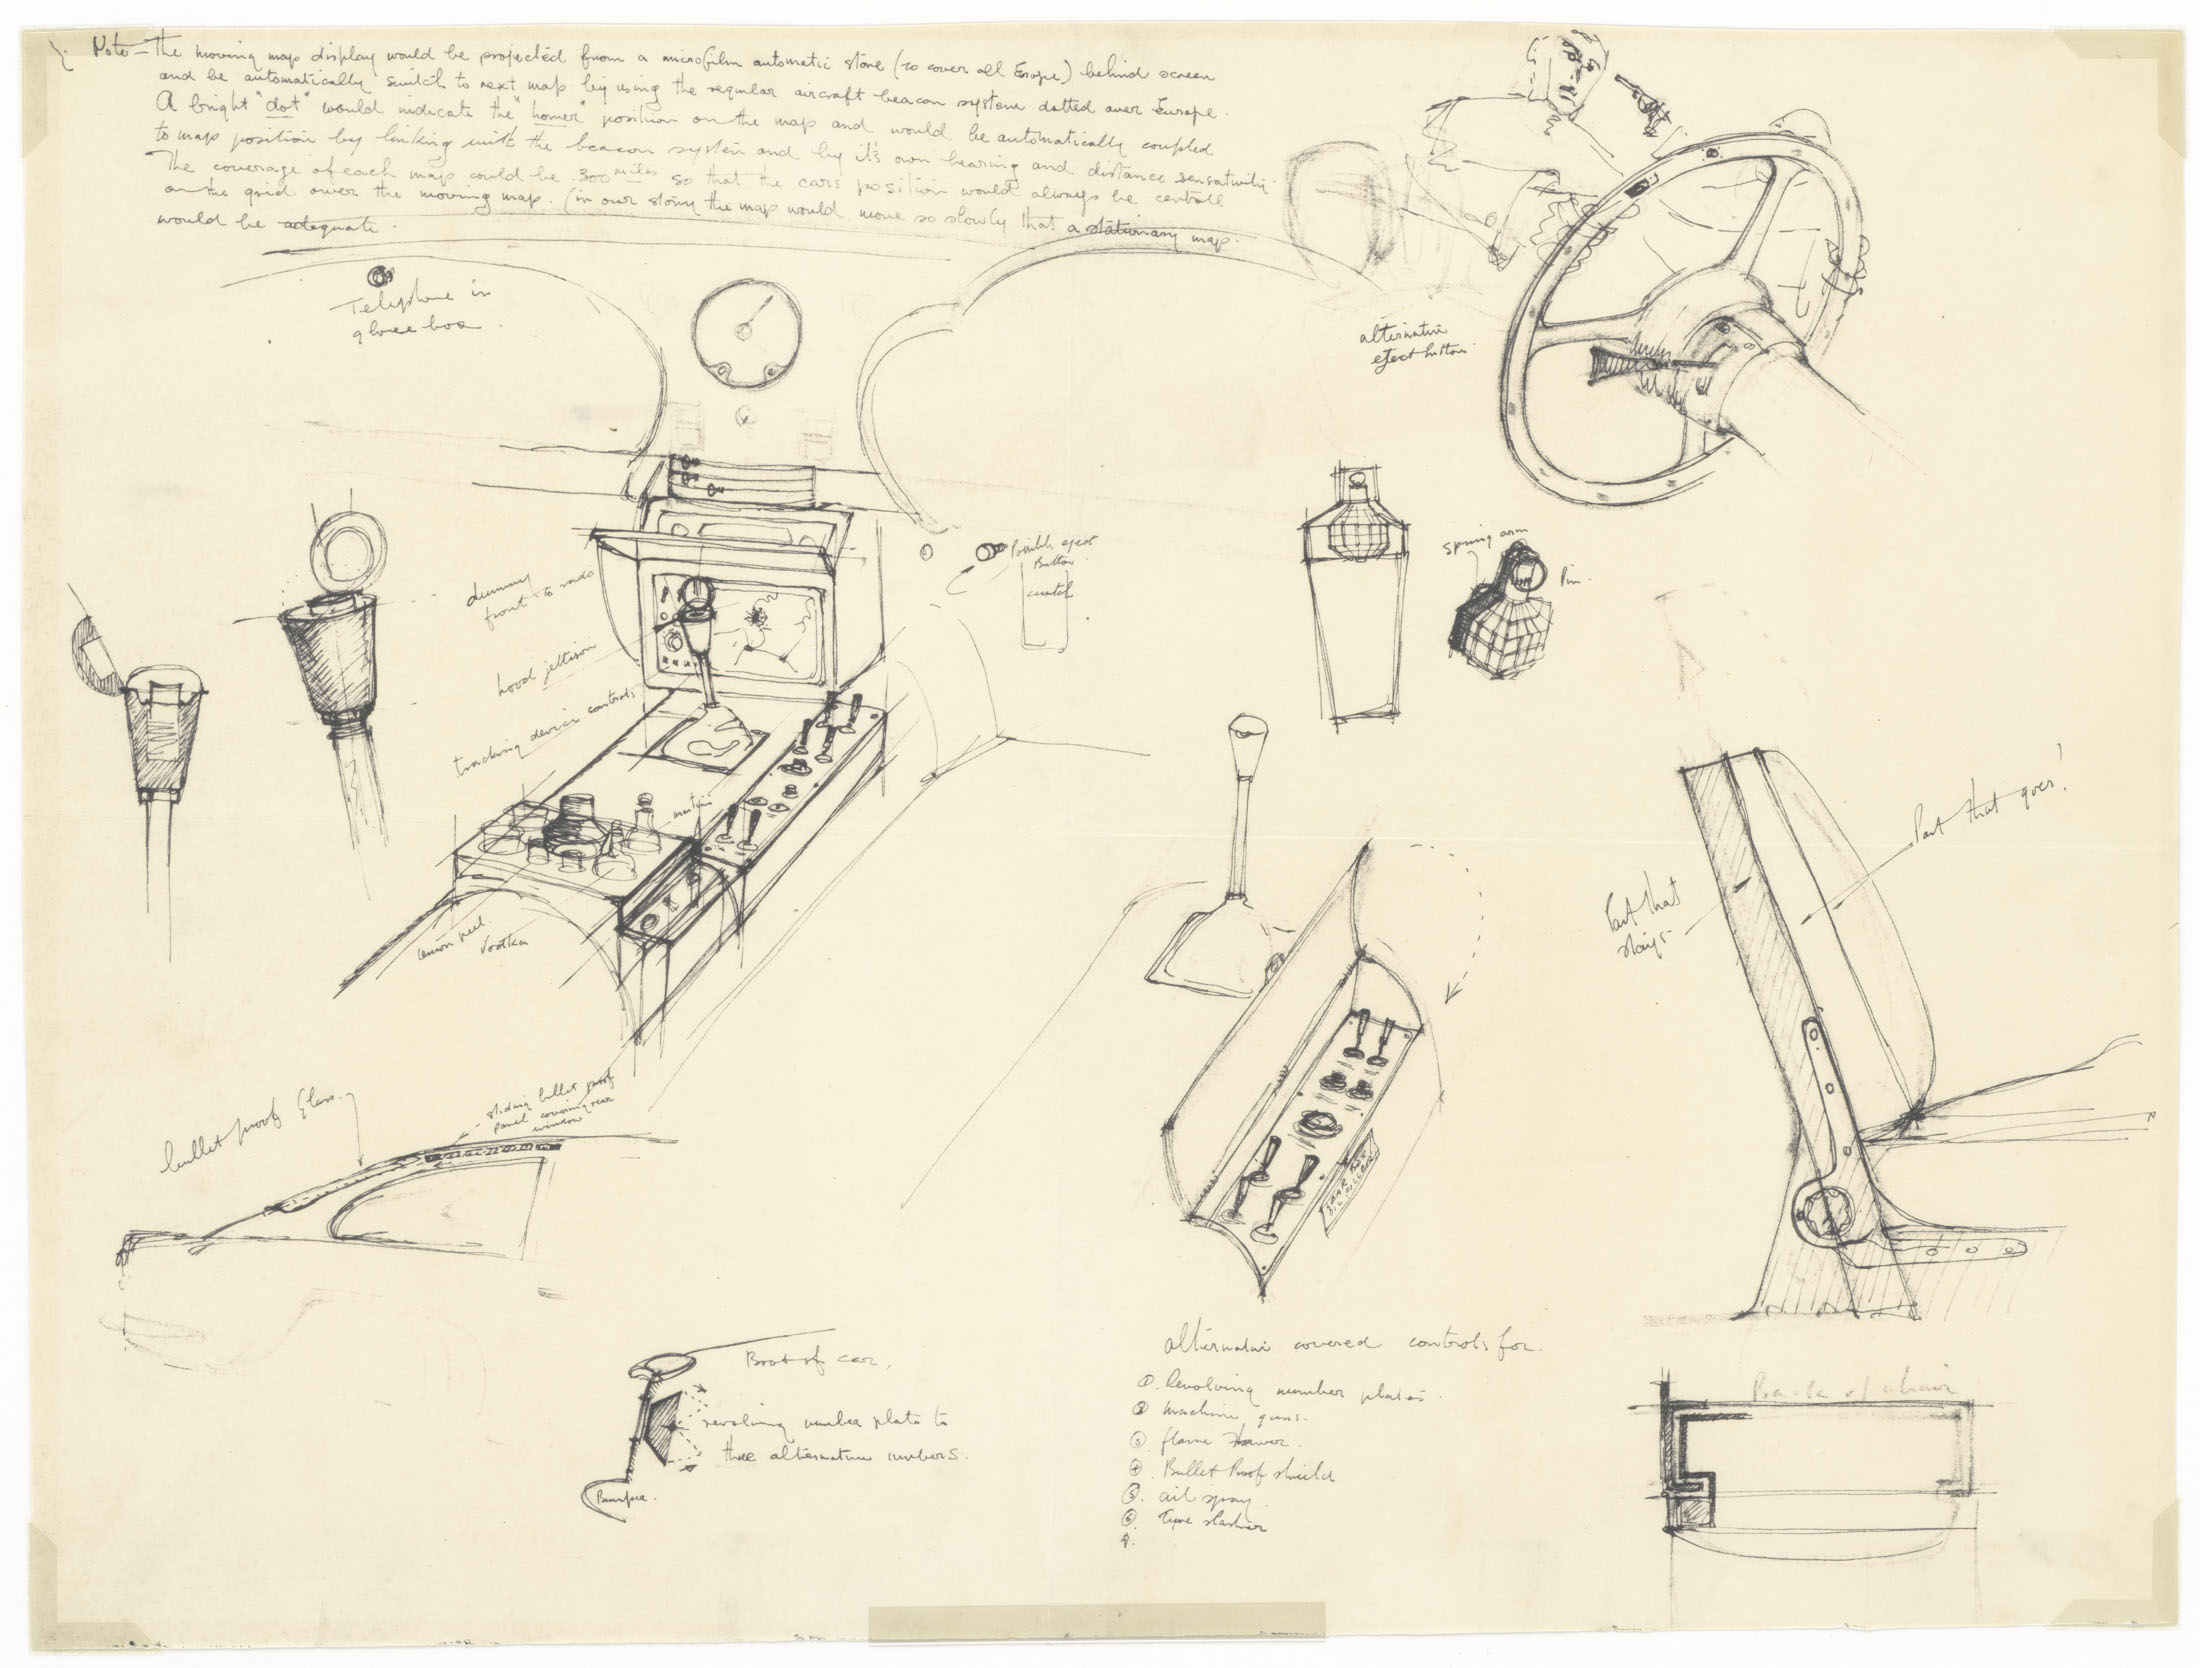 Note - The moving map display would be projected from a microfilm automatic store (to cover all Europe) behind screen
and be automatically switch to next map by using the regular aircraft beacon system dotted over Europe.
A bright "dot" would indicate the "homer" position on the map and would be automatically coupled
to map position by linking with the beacon system and by it's own bearing and distance sensativity.
The coverage of each map could be 300 miles so that the cars position would always be centrall
on the grid over the moving map. (in our story the map would move so slowly that a stationary map.
would be adequate.
Telephone in
glove box.
alternative
eject button
Possible eject
Button
spring arm
Pin.
dummy
front to radio
hood jettison
tracking device controls
martini
lemon peel
Vodka
Part that goes!
Part that
stays
bullet proof Glass.
sliding bullet proof
panel covering rear
window
Boot of car.
revolving number plate to
three alternative numbers.
Bumper.
alternative covered controls for.
1. Revolving number plates.
2 machine guns.
3. flame thrower.
4. Bullet Proof shield
5. oil spray.
6. Tyre slasher
7.
Back of chair